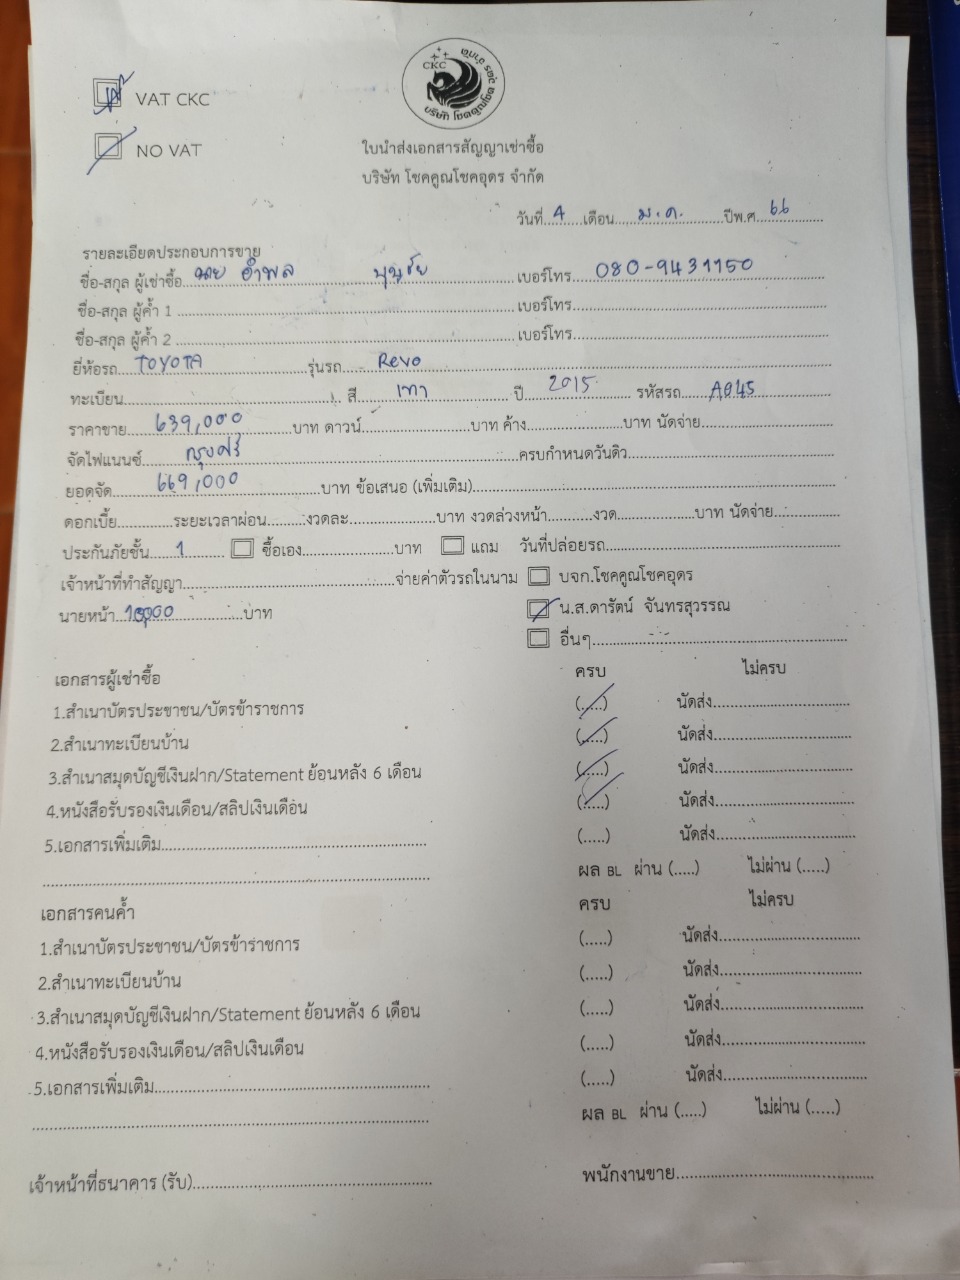 VAT CKC
NO VAT
CKC
บริษัท โชคคูณโชค อุดร จำกัด
ใบนำส่งเอกสารสัญญาเช่าซื้อ
บริษัท โชคคูณโชคอุดร จำกัด
วันที่ 4 เดือน ม.ค. ปีพ.ศ. 66
รายละเอียดประกอบการขาย
ชื่อ-สกุล ผู้เช่าซื้อ นาย อำพล เบอร์โทร 080-9431150
ชื่อ-สกุล ผู้ค้ำ 1 เบอร์โทร
ชื่อ-สกุล ผู้ค้ำ 2 เบอร์โทร
ยี่ห้อรถ TOYOTA รุ่นรถ Revo
ทะเบียน สี เทา ปี 2015 รหัสรถ A045
ราคาขาย 639,000 บาท ดาวน์ บาท ค้าง บาท นัดจ่าย
จัดไฟแนนซ์ กรุงศรี ครบกำหนดวันดิว
ยอดจัด 669,000 บาท ข้อเสนอ (เพิ่มเติม)
ดอกเบี้ย ระยะเวลาผ่อน งวดละ บาท งวดล่วงหน้า งวด บาท นัดจ่าย
ประกันภัยชั้น 1 ซื้อเอง บาท แถม วันที่ปล่อยรถ
เจ้าหน้าที่ทำสัญญา จ่ายค่าตัวรถในนาม บจก.โชคคูณโชคอุดร
นายหน้า บาท น.ส.ดารัตน์ จันทรสุวรรณ
อื่นๆ
เอกสารผู้เช่าซื้อ ครบ ไม่ครบ
1.สำเนาบัตรประชาชน/บัตรข้าราชการ (.....) นัดส่ง
2.สำเนาทะเบียนบ้าน (.....) นัดส่ง
3.สำเนาสมุดบัญชีเงินฝาก/Statement ย้อนหลัง 6 เดือน (.....) นัดส่ง
4.หนังสือรับรองเงินเดือน/สลิปเงินเดือน (.....) นัดส่ง
5.เอกสารเพิ่มเติม (.....) นัดส่ง
ผล BL ผ่าน (.....) ไม่ผ่าน (.....)
เอกสารคนค้ำ ครบ ไม่ครบ
1.สำเนาบัตรประชาชน/บัตรข้าราชการ (.....) นัดส่ง
2.สำเนาทะเบียนบ้าน (.....) นัดส่ง
3.สำเนาสมุดบัญชีเงินฝาก/Statement ย้อนหลัง 6 เดือน (.....) นัดส่ง
4.หนังสือรับรองเงินเดือน/สลิปเงินเดือน (.....) นัดส่ง
5.เอกสารเพิ่มเติม (.....) นัดส่ง
ผล BL ผ่าน (.....) ไม่ผ่าน (.....)
เจ้าหน้าที่ธนาคาร (รับ) พนักงานขาย